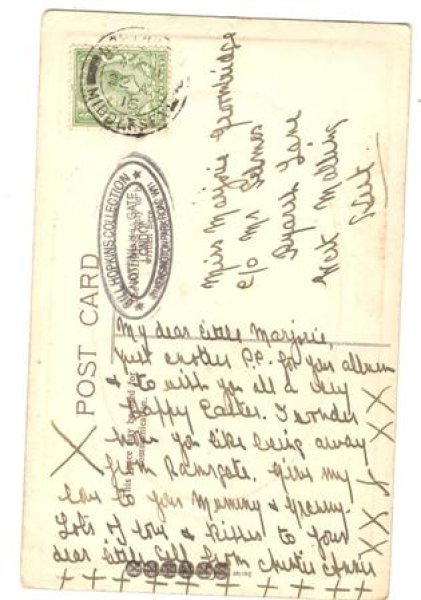 POST CARD
MIDDLESEX
HOPKINS COLLECTION
NOTTINGHILL GATE
LONDON
Miss Marjorie Groombridge
c/o Mr Selmes
Ryarsh Lane
West Malling
Kent
My dear little Marjorie,
just another P.C. for your album
& to wish you all a very
happy Easter. I wonder
how you like being away
from Ramsgate. give my
love to your Mummy & Granny.
Lots of love & kisses to your
dear little self from Auntie Annie